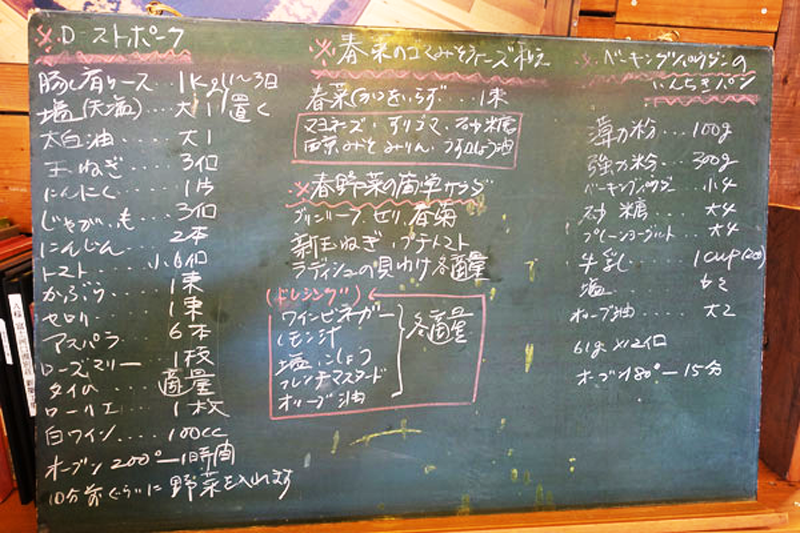 ※ローストポーク
豚と肩ロース...1kg 1~3日
塩(天塩)...大1 置く
太白油...大1
玉ねぎ...3個
にんにく...1片
じゃがいも...3個
にんじん...2本
トマト...小6個
かぶら...1束
セロリ...1束
アスパラ...6本
ローズマリー...1枝
タイム...適量
ローリエ...1枚
白ワイン....100cc
オーブン200°ー1時間
10分前ぐらいに野菜を入れます
※春菜のゴマみそチーズ和え
春菜(かつをいらず)...1束
マヨネーズ・すりゴマ・砂糖
西京みそ みりん・うす口しょう油
※春野菜の菌学サラダ
グリンリーフ、せり、春菊
新玉ねぎ・プチトマト
ラディシュの貝わけ各適量
(ドレシング)
ワインビネガー
レモン汁
塩、こしょう
フレンチマスタード
オリーブ油
各適量
※ベーキングパウダーの
いんちきパン
薄力粉...100g
強力粉...300g
ベーキングパウダー 小4
砂糖....大4
プレーンヨーグルト...大4
牛乳....1cup(200)
塩
オリーブ油...大2
61g×12個
オーブン180°ー15分